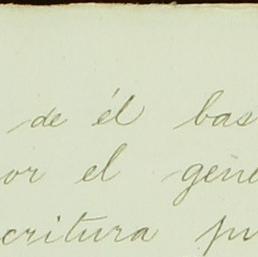 de él bas
or el gene
critura pu